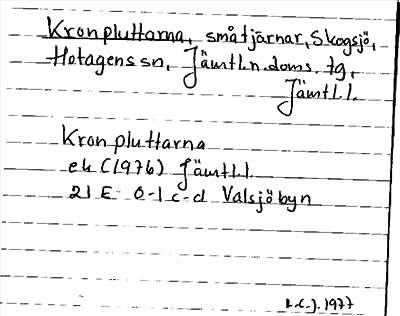 Kronpluttarna, småtjärnar, Skogsjö,
Hotagens sn, Jämtl.n.doms. tg,
Jämtl.l.
Kronpluttarna
ek (1976) Jämtl.l.
21 E 0-1 c-d Valsjöbyn
1977